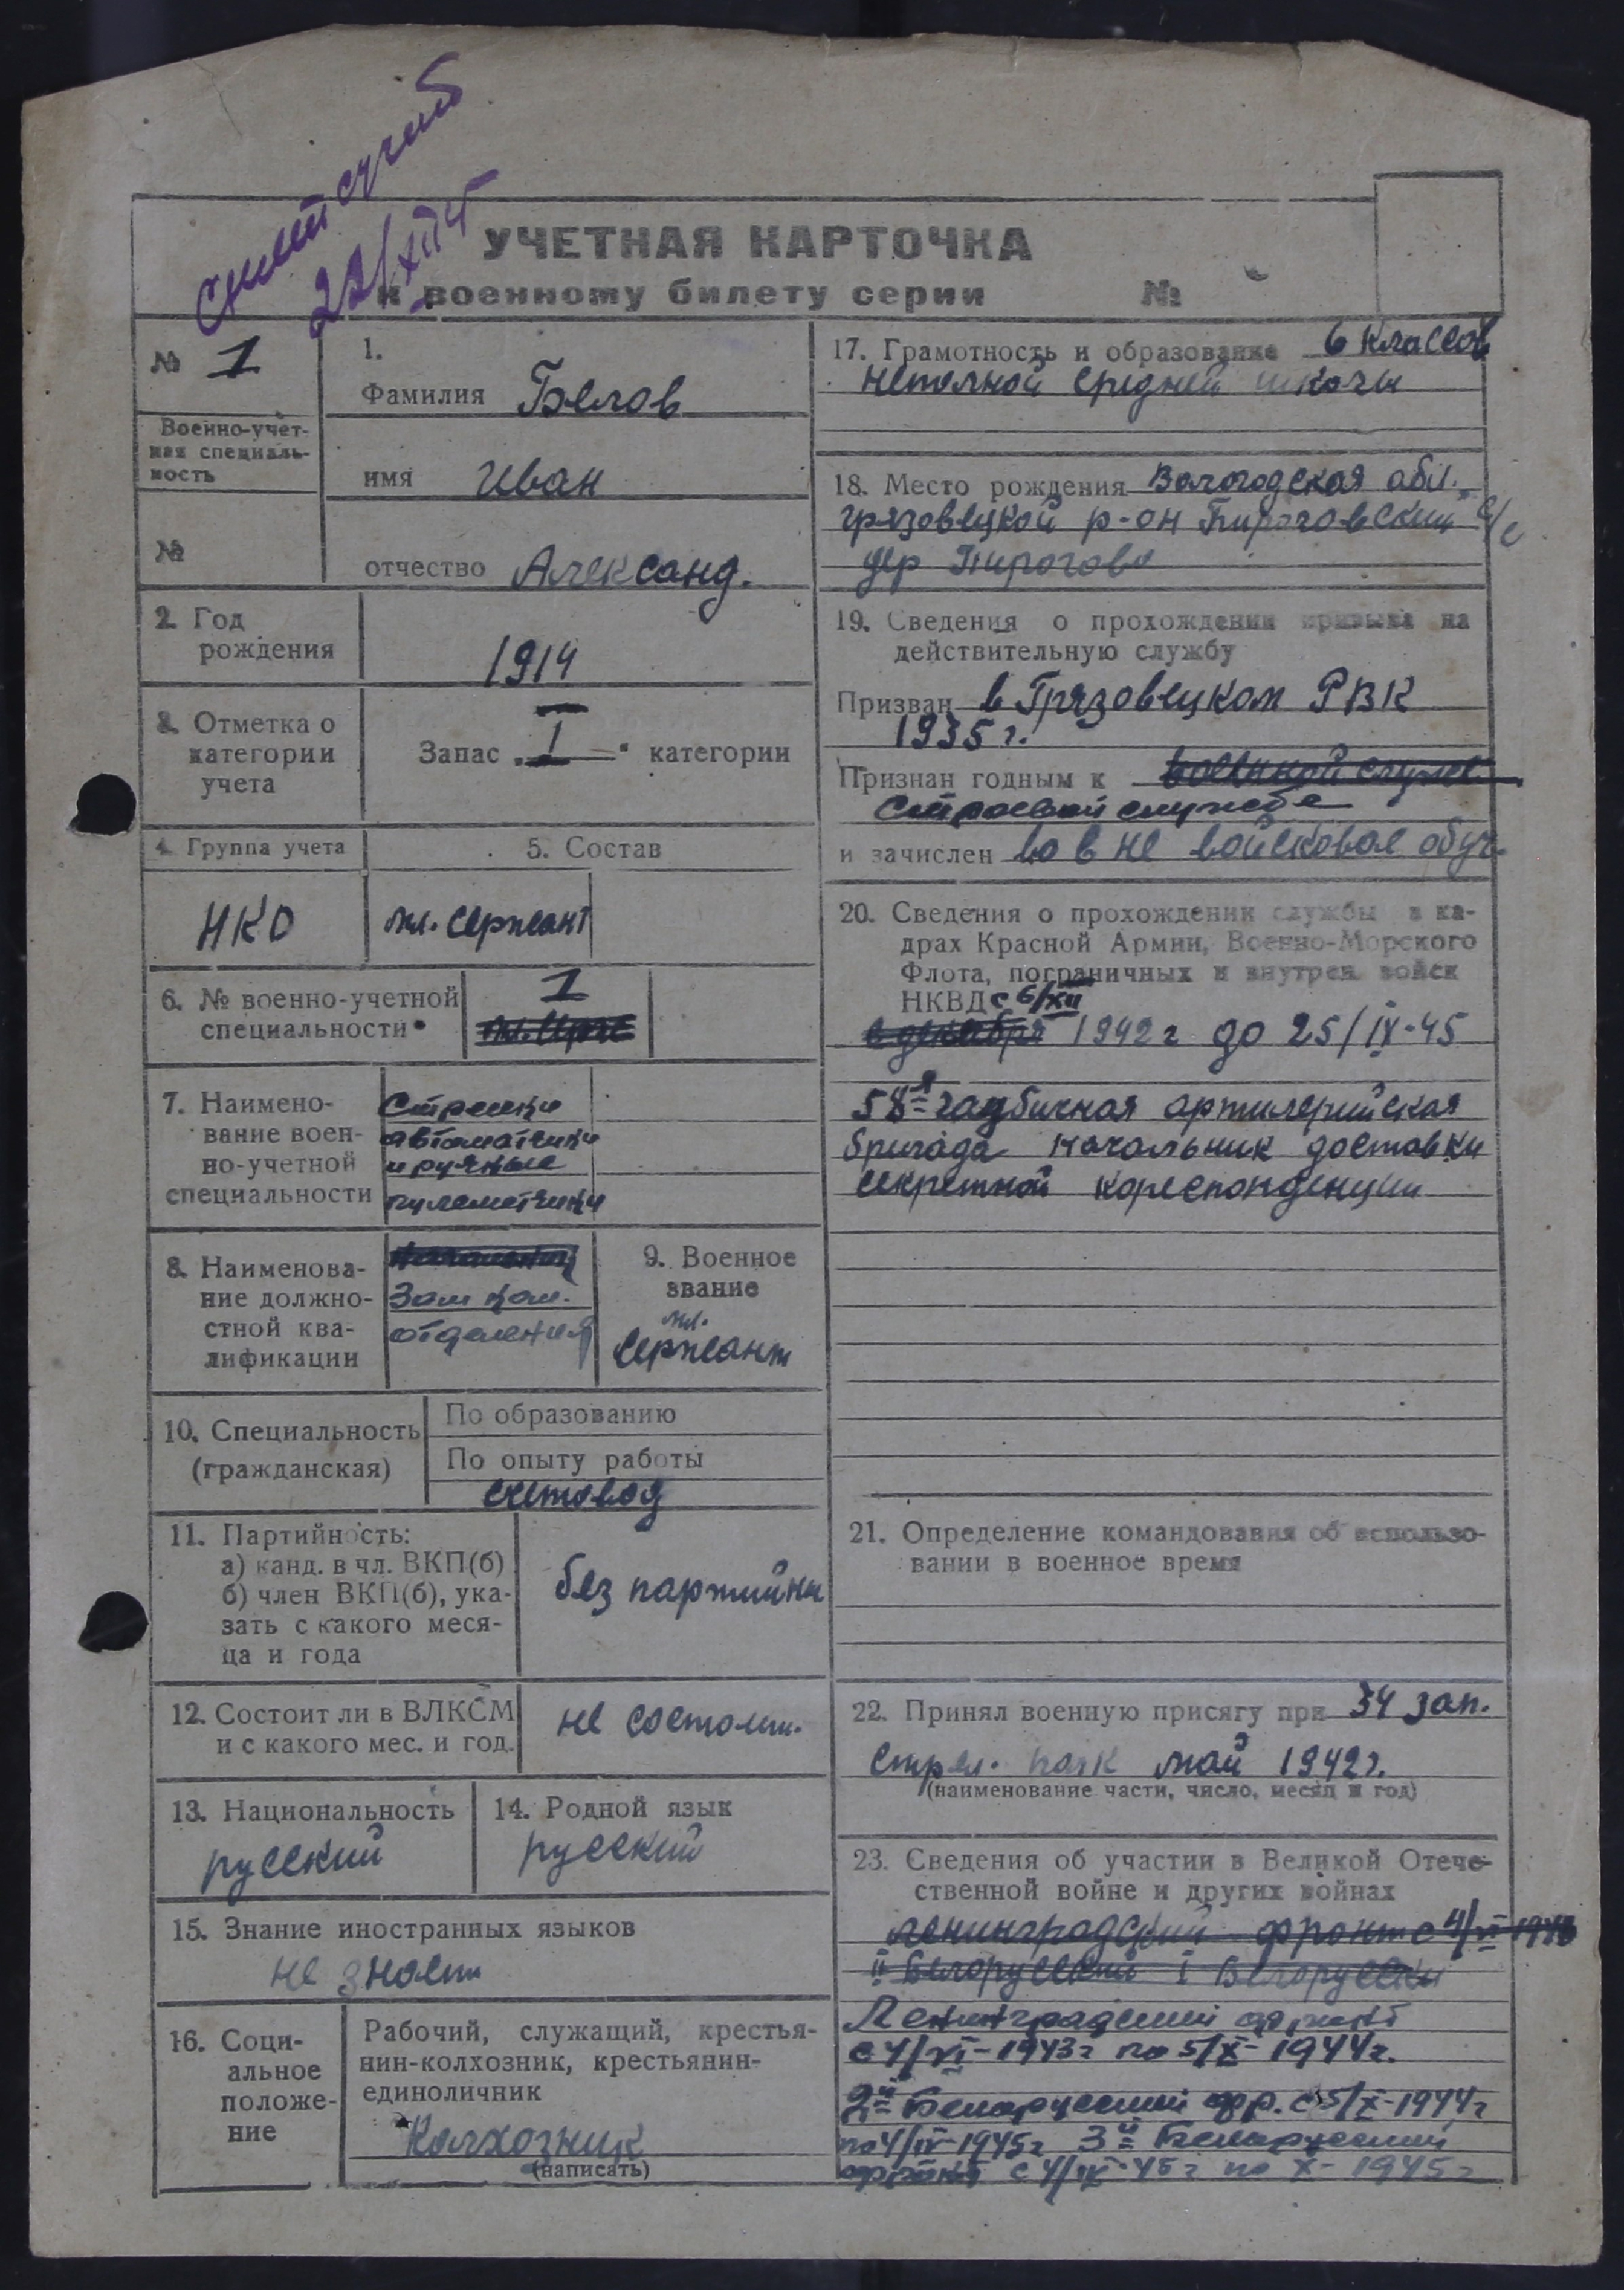 снят с учета
22/XII 45
УЧЕТНАЯ КАРТОЧКА
к военному билету серии №
№ 1
Военно-учет-
ная специаль-
ность
№
1.
Фамилия Белов
имя Иван
отчество Александ.
2. Год
рождения
1914
3. Отметка о
категории
учета
Запас „I“ категории
4. Группа учета
НКО
5. Состав
мл. сержант
6. № военно-учетной
специальности
1
мл. серж
7. Наимено-
вание воен-
но-учетной
специальности
Стрелки
автоматчики
и ручные
пулеметчики
8. Наименова-
ние должно-
стной ква-
лификации
Зам ком.
отделения
9. Военное
звание
мл.
сержант
10. Специальность
(гражданская)
По образованию
По опыту работы
счетовод
11. Партийность:
а) канд. в чл. ВКП(б)
б) член ВКП(б), ука-
зать с какого меся-
ца и года
без партийны
12. Состоит ли в ВЛКСМ
и с какого мес. и год.
не состоит.
13. Национальность
русский
14. Родной язык
русский
15. Знание иностранных языков
не знает
16. Соци-
альное
положе-
ние
Рабочий, служащий, крестья-
нин-колхозник, крестьянин-
единоличник
Колхозник
(написать)
17. Грамотность и образование 6 классов
неполной средней школы
18. Место рождения Вологодская обл.
грязовецкой р-он Пироговский с/с
дер Пирогово
19. Сведения о прохождении призыва на
действительную службу
Призван в Грязовецком РВК
1935 г.
Признан годным к военной службе
строевой службе
и зачислен во в не войсковое обуч.
20. Сведения о прохождении службы в ка-
драх Красной Армии, Военно-Морского
Флота, пограничных и внутрен. войск
НКВД с 6/XII
в декабря 1942 г до 25/IX-45
58-я гаубичная артилерийская
бригада начальник доставки
секретной кореспонденции
21. Определение командования об использо-
вании в военное время
22. Принял военную присягу при 34 зап.
стрел. полк май 1942 г.
(наименование части, число, месяц и год)
23. Сведения об участии в Великой Отече-
ственной войне и других войнах
ленинградский фронт с 4/VI 1943
II Белорусский I Белорусски
Ленинградский фронт
с 4/VI-1943 г по 5/X-1944 г.
2й Белорусский фр. с 5/X-1944 г
по 4/IV-1945 г 3й Белорусский
фронт с 4/IV-45 г по X-1945 г